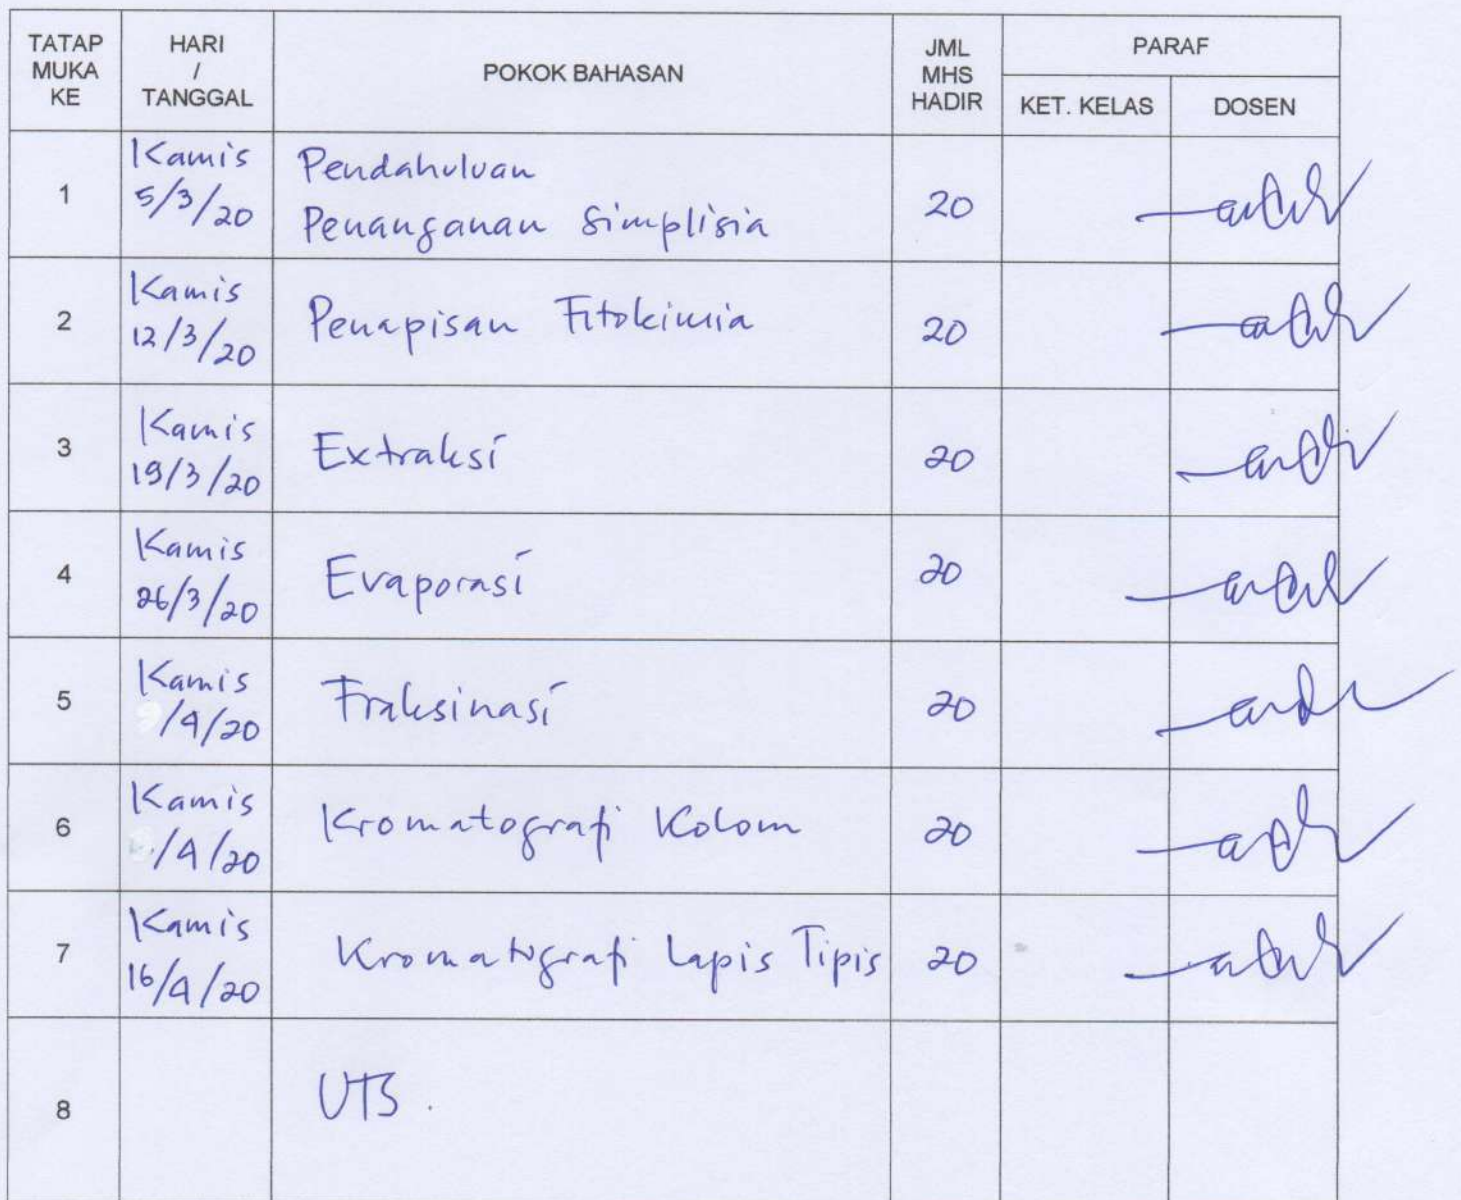 TATAP MUKA KE
HARI / TANGGAL
POKOK BAHASAN
JML MHS HADIR
PARAF
KET. KELAS
DOSEN
1
Kamis
5/3/20
Pendahuluan
Penanganan Simplisia
20
2
Kamis
12/3/20
Penapisan Fitokimia
20
3
Kamis
19/3/20
Extraksi
20
4
Kamis
26/3/20
Evaporasi
20
5
Kamis
/4/20
Fraksinasi
20
6
Kamis
/4/20
Kromatografi Kolom
20
7
Kamis
16/4/20
Kromatografi Lapis Tipis
20
8
UTS.